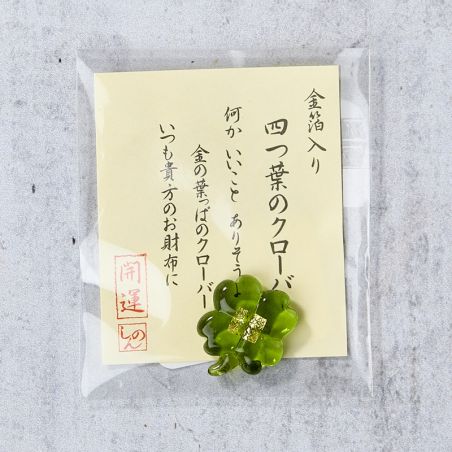 金箔入り
四つ葉のクローバー
何かいいことありそう
金の葉っぱのクローバー
いつも貴方のお財布に
開運
しんの